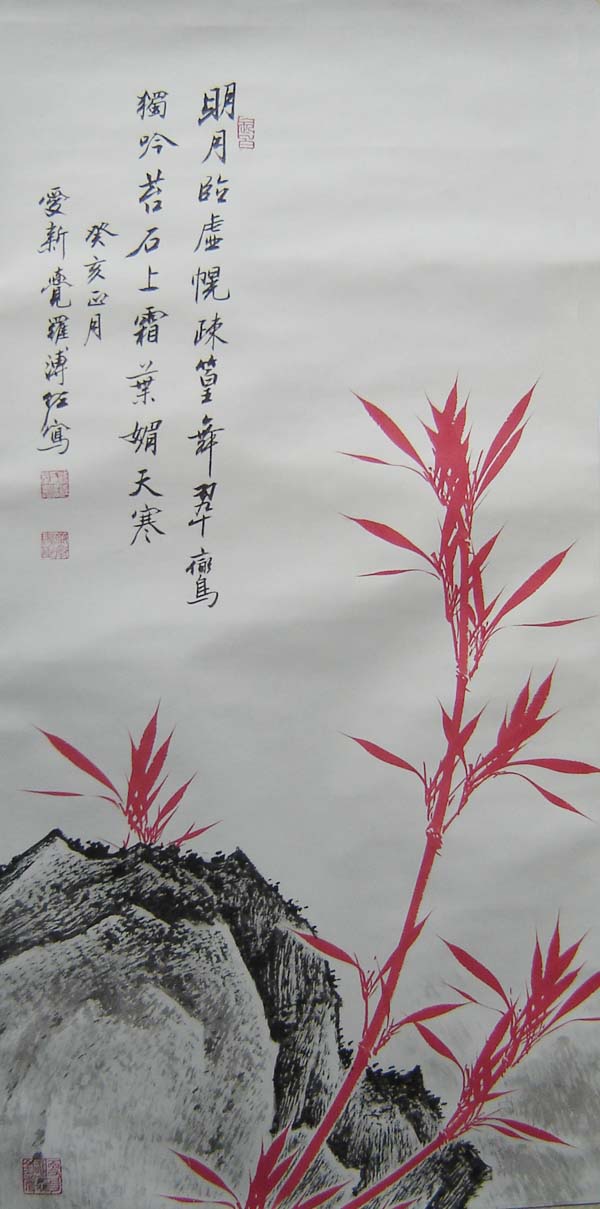 明月临虚幌疎篁舞翠鸞
獨吟苔石上霜葉媚天寒
癸亥正月
愛新覺羅溥佐寫